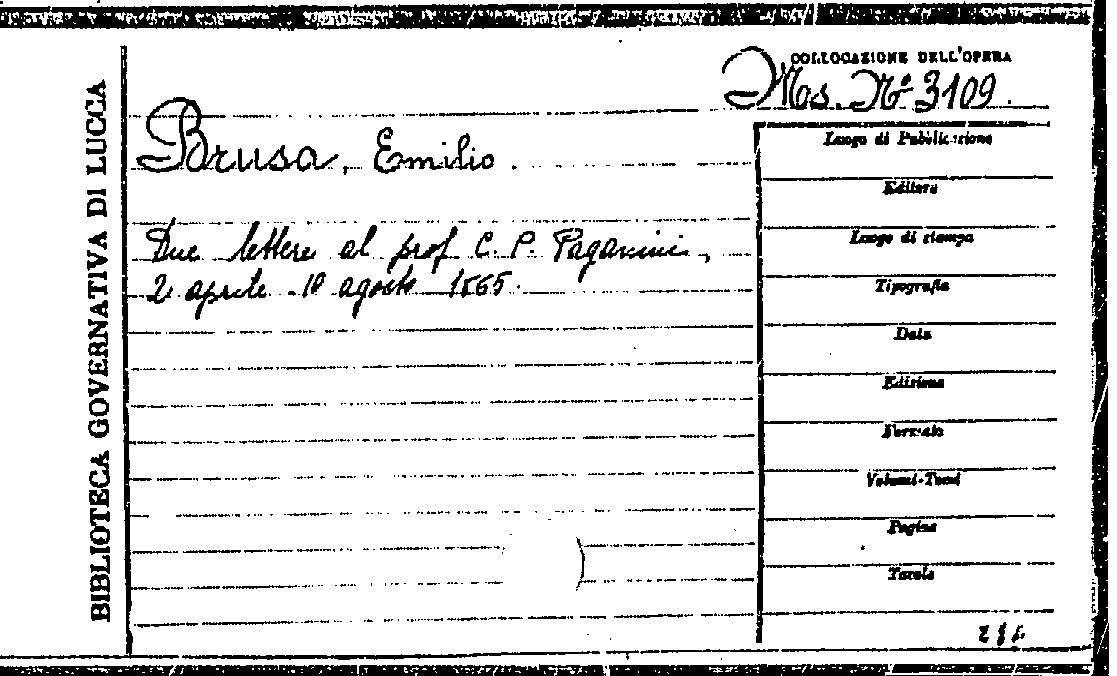 BIBLIOTECA GOVERNATIVA DI LUCCA
COLLOCAZIONE DELL'OPERA
Mos. Nº 3109.
Brusa, Emilio.
Due lettere al prof. C. P. Paganini,
2 aprile - 10 agosto 1865.
Luogo di Pubblicazione
Editore
Luogo di stampa
Tipografia
Data
Edizione
Formato
Volumi-Tomi
Pagine
Tavole